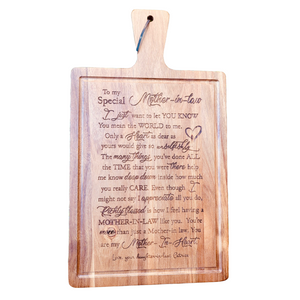 To my
Special Mother-in-law
I Just want to let YOU KNOW
You mean the WORLD to me.
Only a Heart as dear as
yours would give so unselfishly.
The many things you've done ALL
the TIME that you were there help
me know deep down inside how much
you really CARE. Even though I
might not say I appreciate all you do,
Richly blessed is how I feel having a
MOTHER-IN-LAW like you. You're
more than just a Mother-in-law. You are
my Mother-In-Heart
Love your